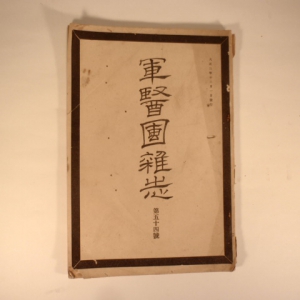 軍醫團雜志
第五十四號